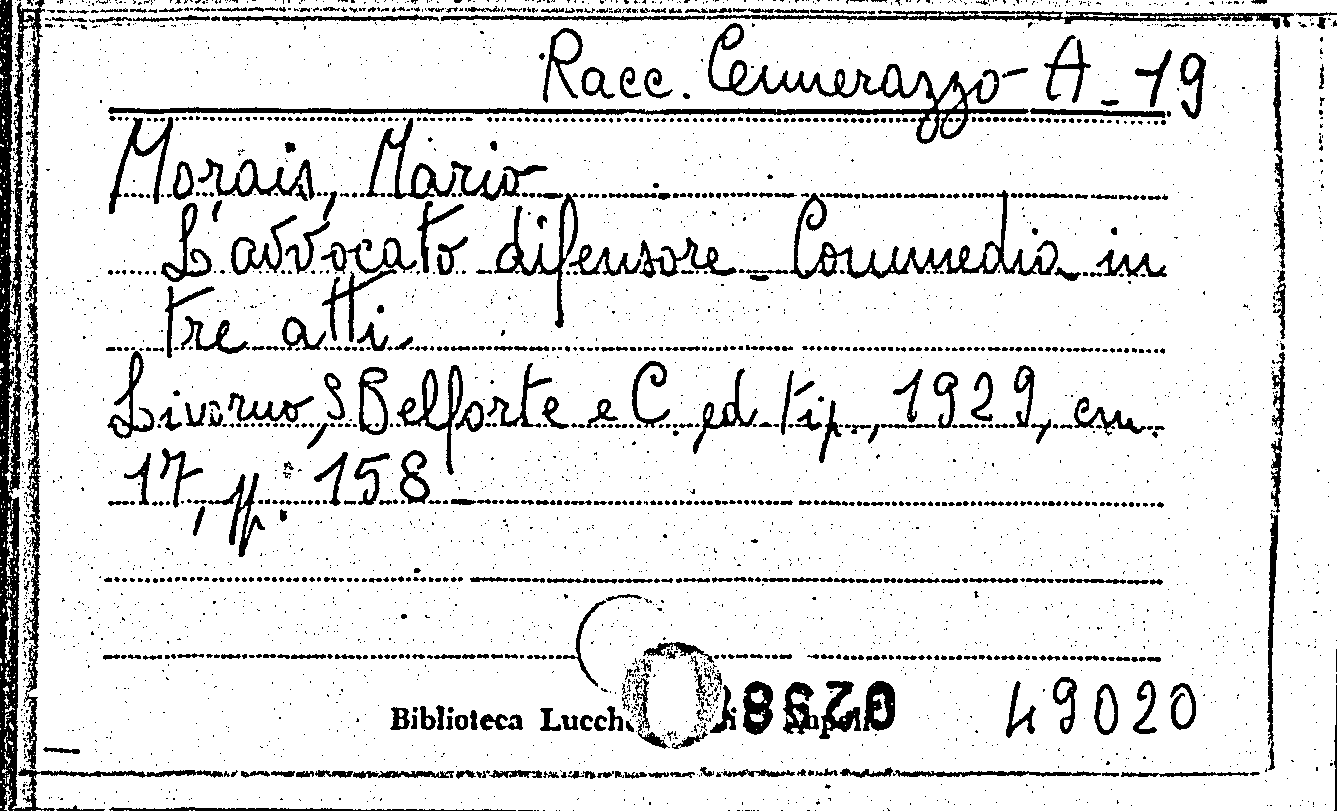 Racc. Cennerazzo - A - 19
Morais, Mario
L'avvocato difensore - Commedia in
tre atti.
Livorno, S. Belforte e C. ed. tip., 1929, cm.
17, pp. 158
Biblioteca Napoli 49020